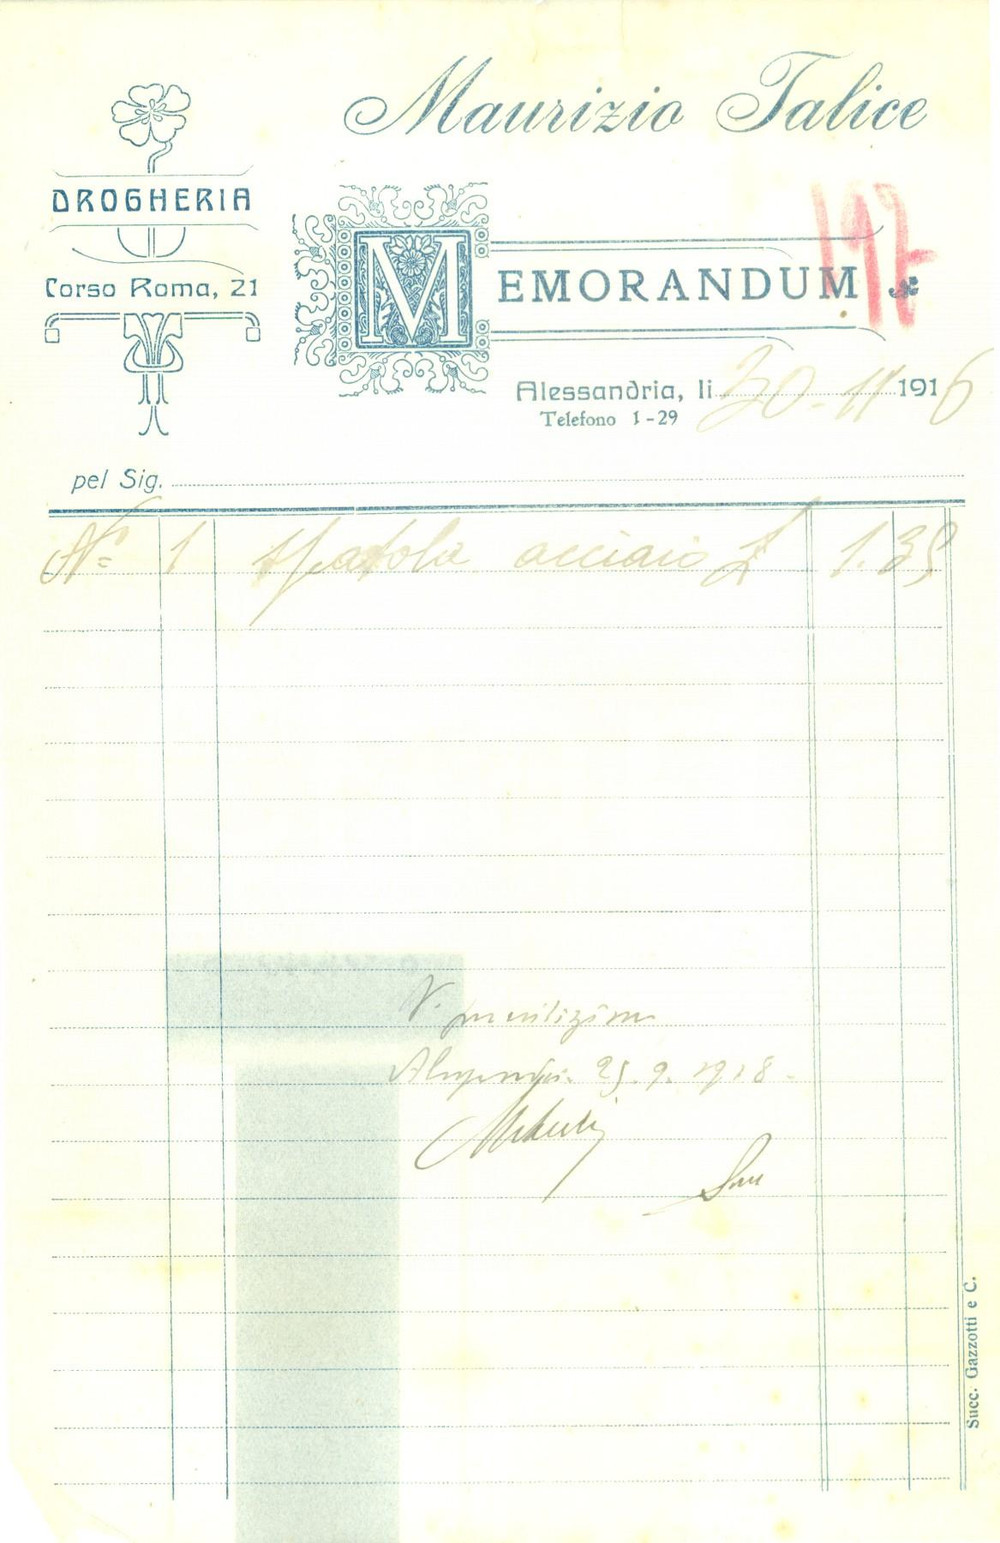 Maurizio Talice
DROGHERIA
Corso Roma, 21
MEMORANDUM
197
Alessandria, li 30-11 1916
Telefono 1-29
pel Sig.
N° 1 spatola acciaio £ 1.35
V.
25.9.1918
Succ. Gazzotti e C.